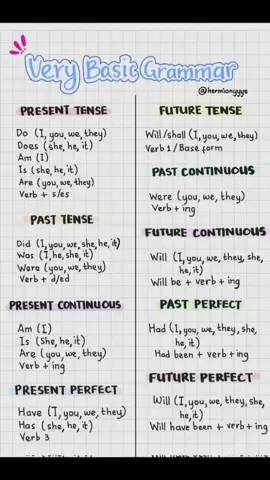 Very Basic Grammar
@hermionyyye
PRESENT TENSE
Do (I, you, we, they)
Does (she, he, it)
Am (I)
Is (she, he, it)
Are (you, we, they)
Verb + s/es
PAST TENSE
Did (I, you, we, she, he, it)
Was (I, he, she, it)
Were (you, we, they)
Verb + d/ed
PRESENT CONTINUOUS
Am (I)
Is (she, he, it)
Are (you, we, they)
Verb + ing
PRESENT PERFECT
Have (I, you, we, they)
Has (she, he, it)
Verb 3
FUTURE TENSE
Will/shall (I, you, we, they)
Verb 1/Base form
PAST CONTINUOUS
Were (you, we, they)
Verb + ing
FUTURE CONTINUOUS
Will (I, you, we, they, she,
he, it)
Will be + verb + ing
PAST PERFECT
Had (I, you, we, they, she,
he, it)
Had been + verb + ing
FUTURE PERFECT
Will (I, you, we, they, she,
he, it)
Will have been + verb + ing